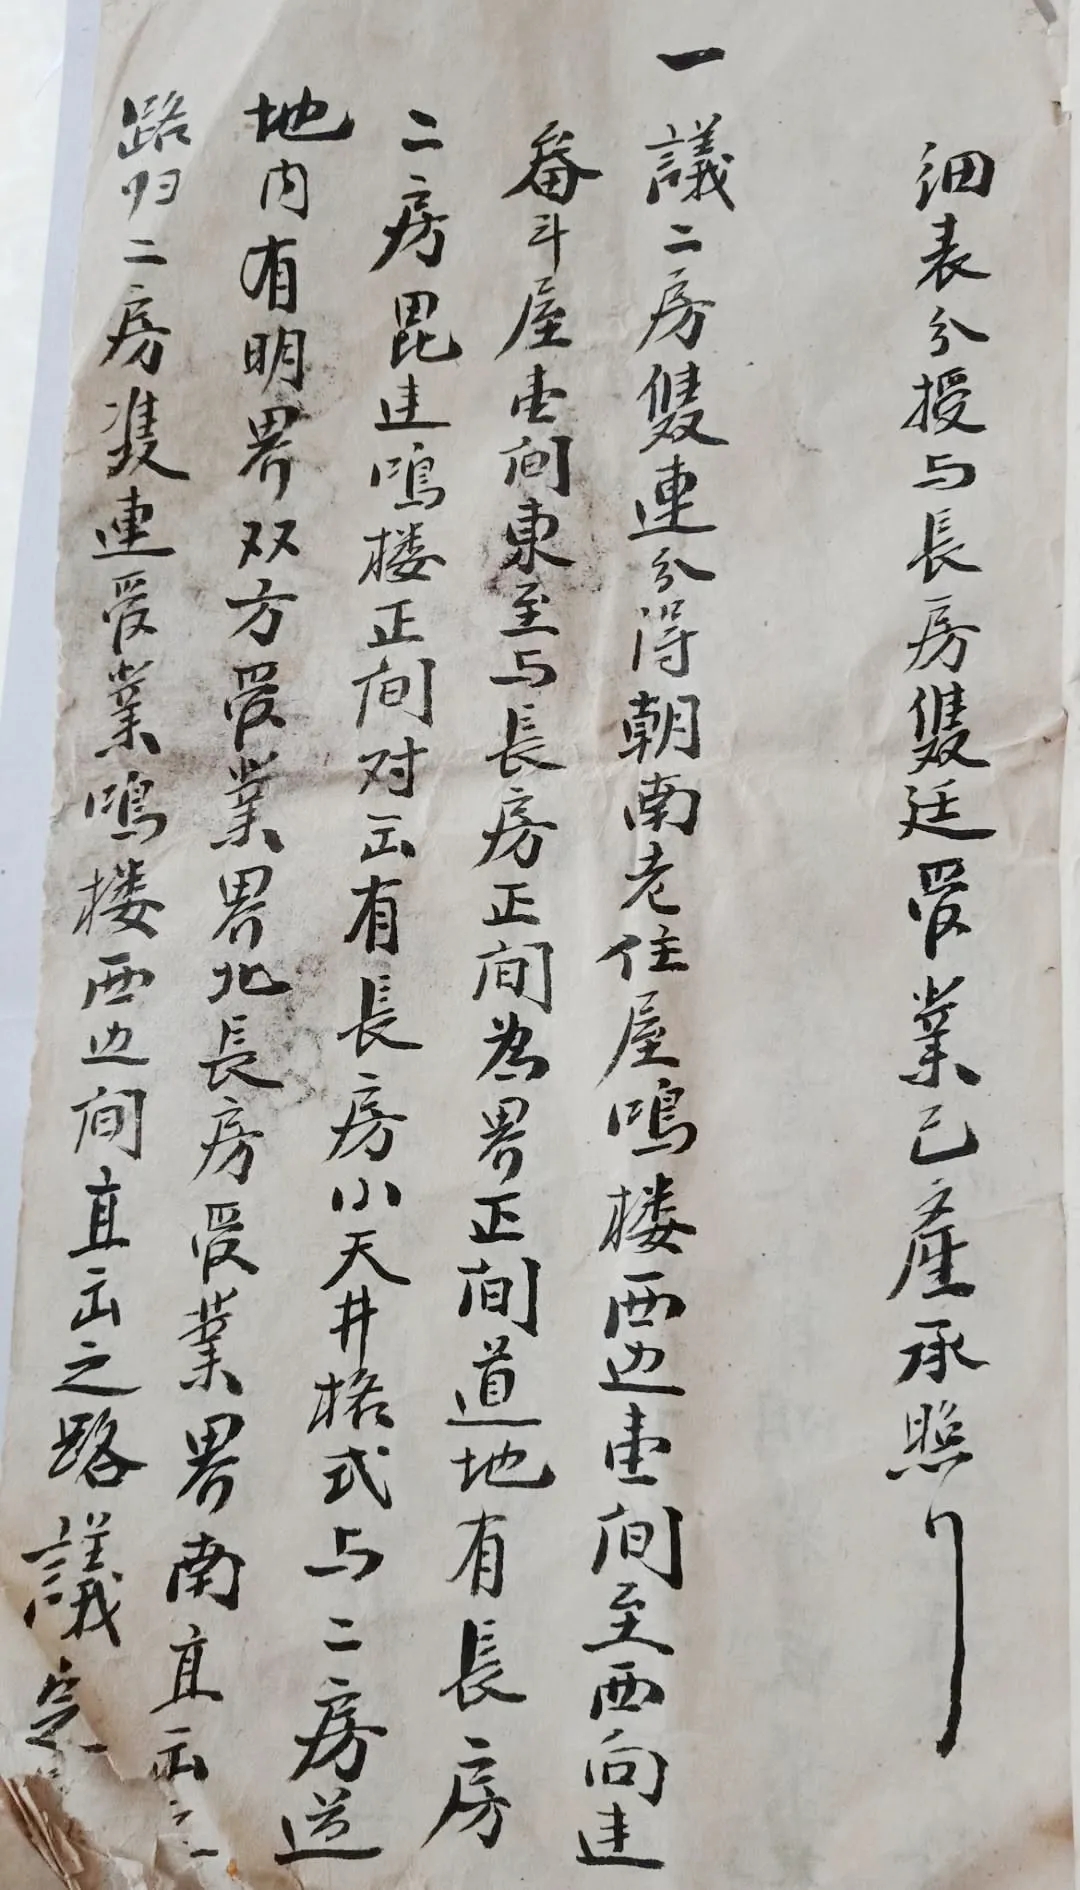 细表分授与長房雙廷受業己產承照
一議二房雙連分得朝南老住屋鳴楼西边壹间至西向连
畚斗屋壹间東至与長房正间為界正间道地有長房
二房毘连鳴楼正间对出有長房小天井格式与二房道
地内有明界双方受業界北長房受業界南直出之
路归二房雙連受業鳴楼西边间直出之路議定